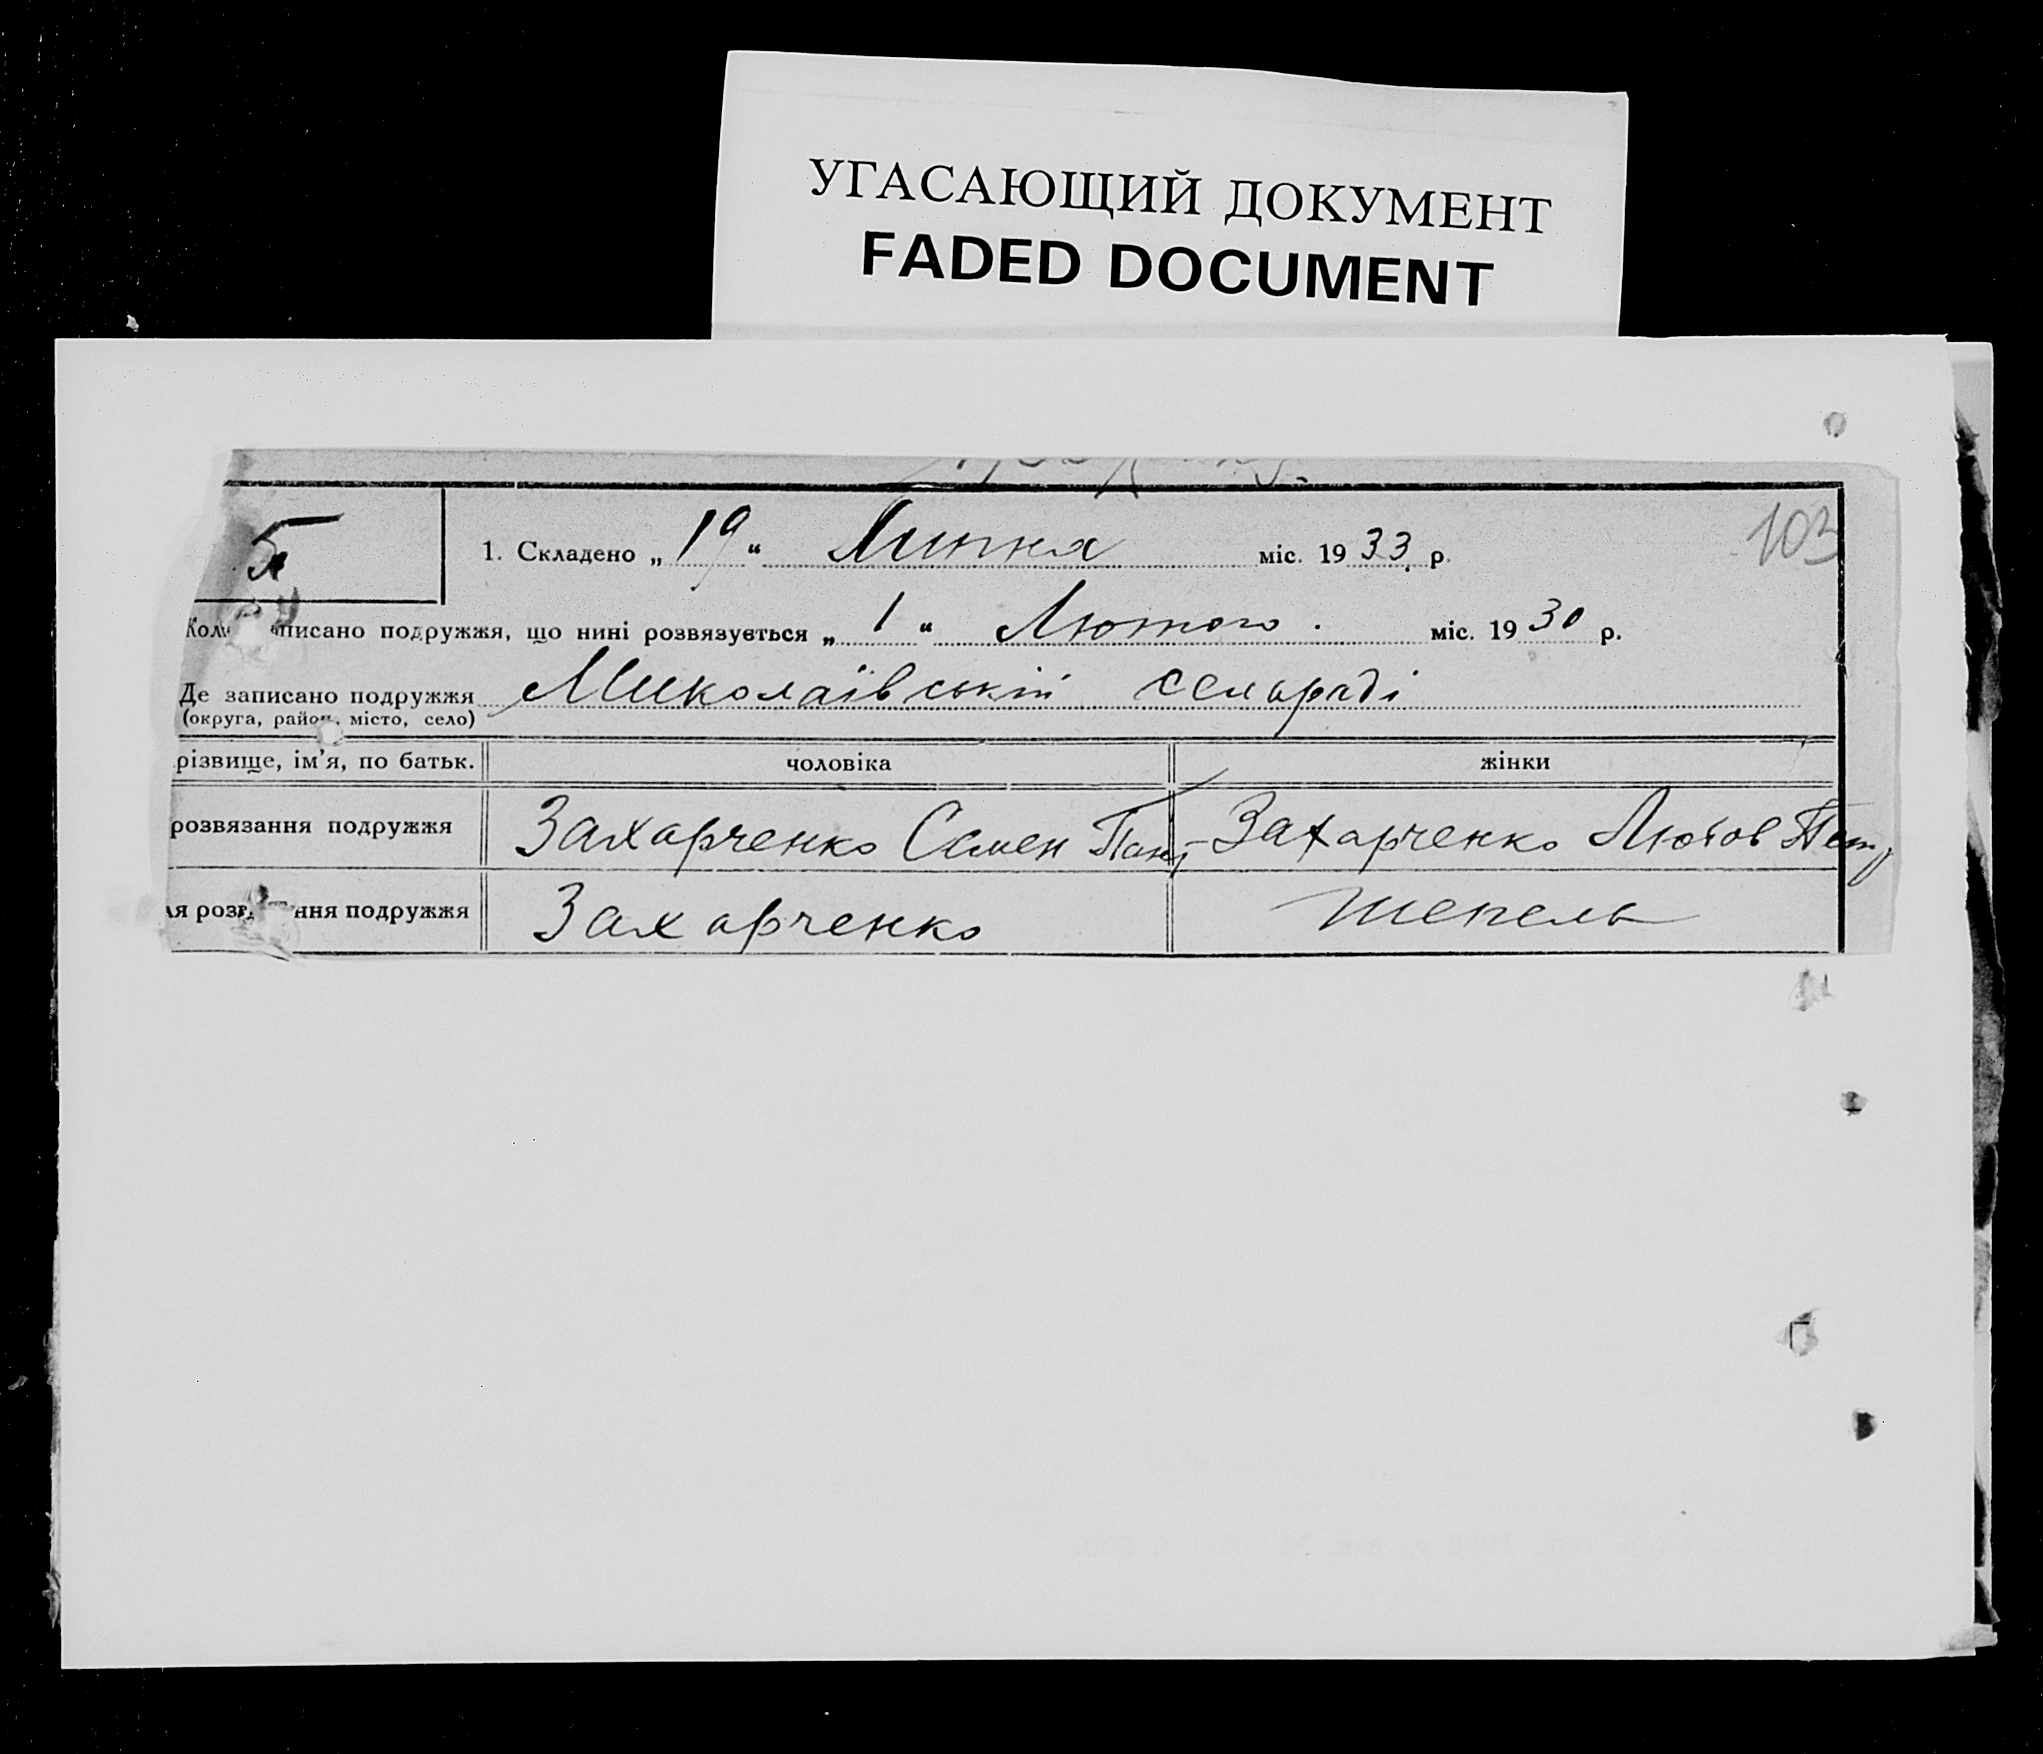 УГАСАЮЩИЙ ДОКУМЕНТ
FADED DOCUMENT
103
1. Складено „ 19 “ Липня міс. 19 33 р.
писано подружжя, що нині розвязується „ 1 “ Лютого. міс. 19 30 р.
Де записано подружжя Миколаївській сельраді
(округа, район, місто, село)
різвище, ім'я, по батьк. чоловіка жінки
розвязання подружжя Захарченко Семен Захарченко Любов Петр
ння подружжя Захарченко Шепель